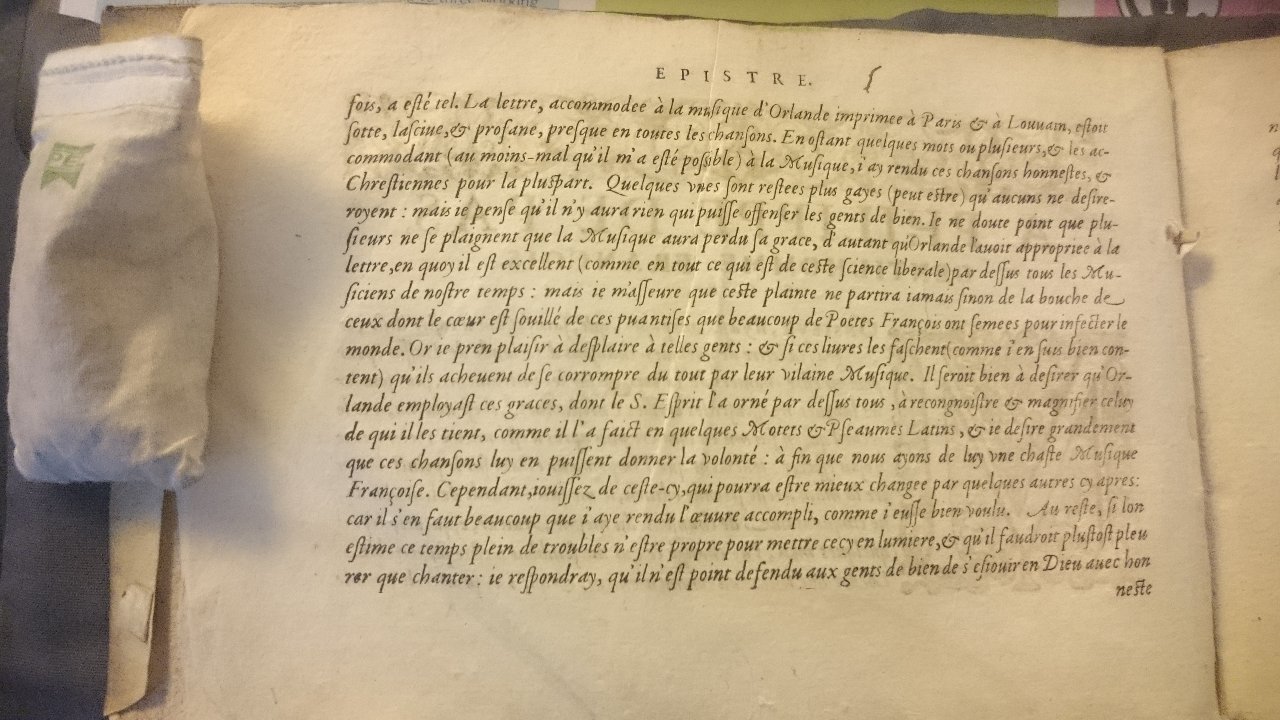 EPISTRE.
fois, a esté tel. La lettre, accommodee à la musique d'Orlande imprimee à Paris & à Louuain, estoit
sotte, lasciue, & profane, presque en toutes les chansons. En ostant quelques mots ou plusieurs, & les ac-
commodant (au moins-mal qu'il m'a esté possible) à la Musique, i'ay rendu ces chansons honnestes, &
Chrestiennes pour la pluspart. Quelques vnes sont restees plus gayes (peut estre) qu'aucuns ne desire-
royent : mais ie pense qu'il n'y aura rien qui puisse offenser les gents de bien. Ie ne doute point que plu-
sieurs ne se plaignent que la Musique aura perdu sa grace, d'autant qu'Orlande l'auoit appropriee à la
lettre, en quoy il est excellent (comme en tout ce qui est de ceste science liberale) par dessus tous les Mu-
siciens de nostre temps : mais ie m'asseure que ceste plainte ne partira iamais sinon de la bouche de
ceux dont le cœur est souillé de ces puantises que beaucoup de Poetes François ont semees pour infecter le
monde. Or ie pren plaisir à desplaire à telles gents : & si ces liures les faschent (comme i'en suis bien con-
tent) qu'ils acheuent de se corrompre du tout par leur vilaine Musique. Il seroit bien à desirer qu'Or-
lande employast ces graces, dont le S. Esprit l'a orné par dessus tous, à recongnoistre & magnifier celuy
de qui il les tient, comme il l'a faict en quelques Motets & Pseaumes Latins, & ie desire grandement
que ces chansons luy en puissent donner la volonté : à fin que nous ayons de luy vne chaste Musique
Françoise. Cependant, iouissez de ceste-cy, qui pourra estre mieux changee par quelques autres cy apres:
car il s'en faut beaucoup que i'aye rendu l'œuure accompli, comme i'eusse bien voulu. Au reste, si lon
estime ce temps plein de troubles n'estre propre pour mettre cecy en lumiere, & qu'il faudroit plustost pleu
rer que chanter : ie respondray, qu'il n'est point defendu aux gents de bien de s'esiouir en Dieu auec hon
neste